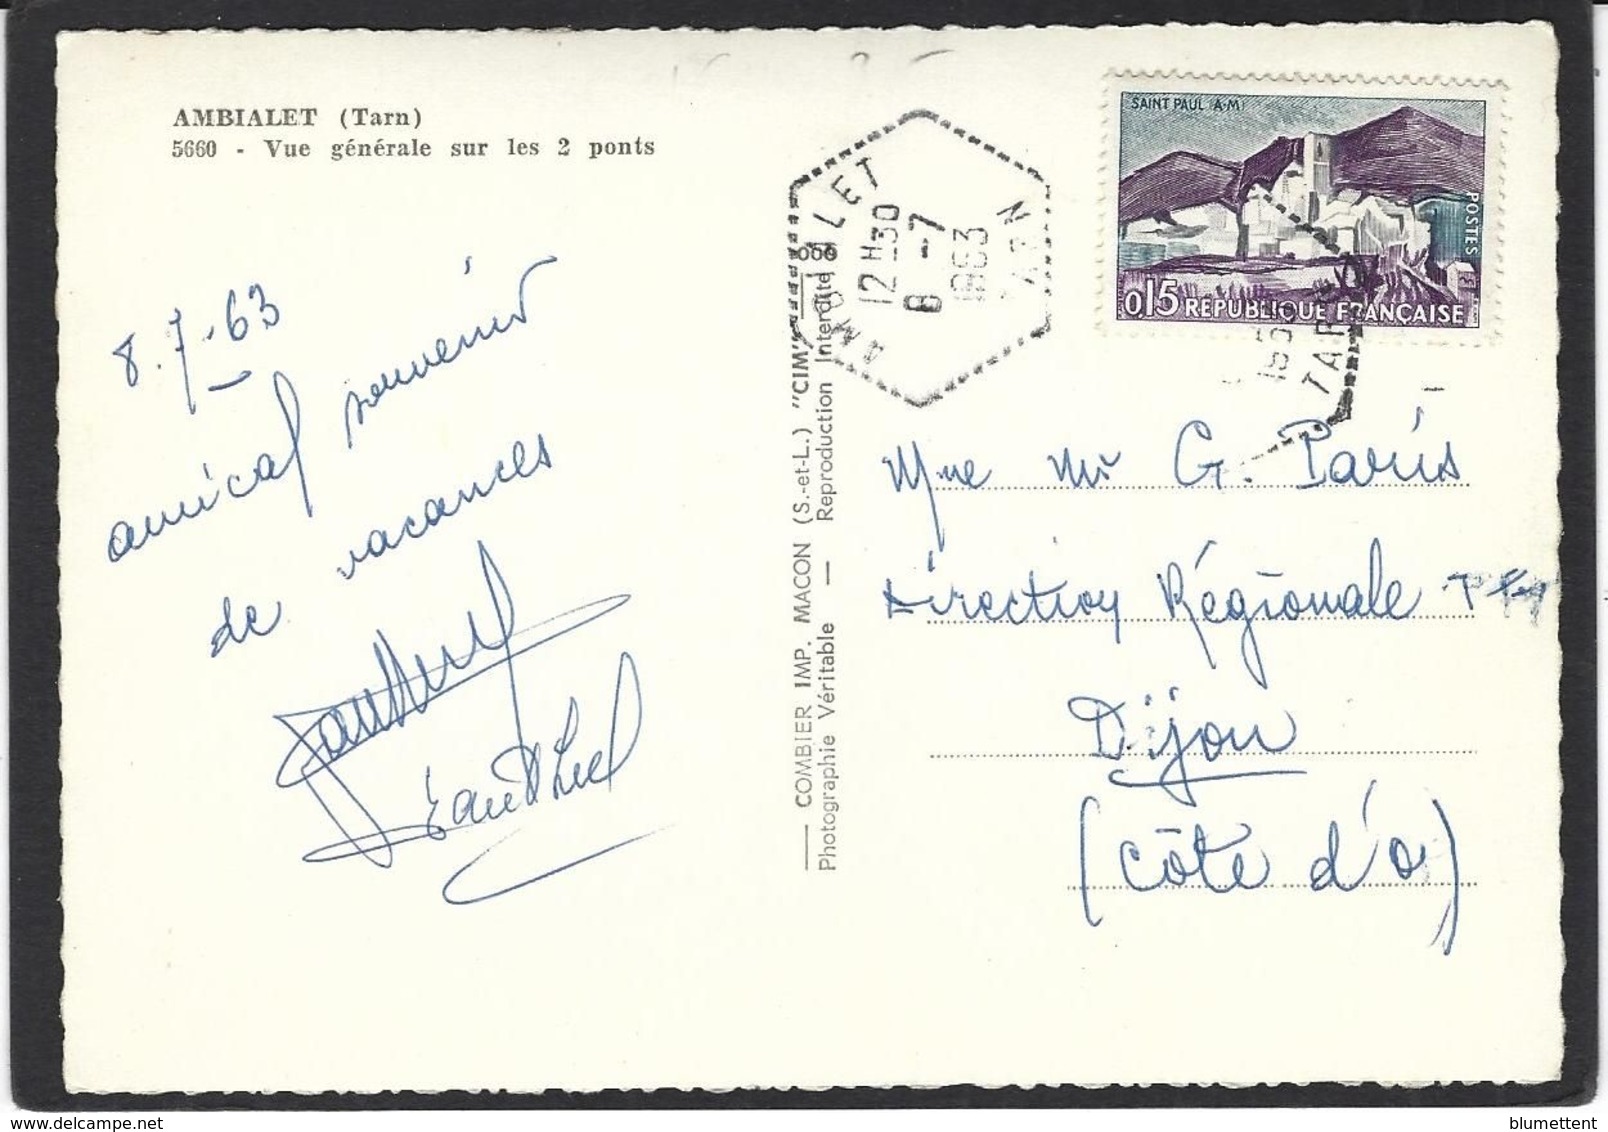 AMBIALET (Tarn)
5660 - Vue générale sur les 2 ponts
8.7-63
amical souvenir
de vacances
COMBIER IMP. MACON (S.-et-L.) "CIM"
Photographie Véritable — Reproduction Interdite
12H-30
8 -7
1963
TARN
SAINT PAUL A-M
POSTES
0,15 RÉPUBLIQUE FRANÇAISE
TARN
Mme Mr G. Paris
Direction Régionale
Dijon
(Côte d'or)
blumettent